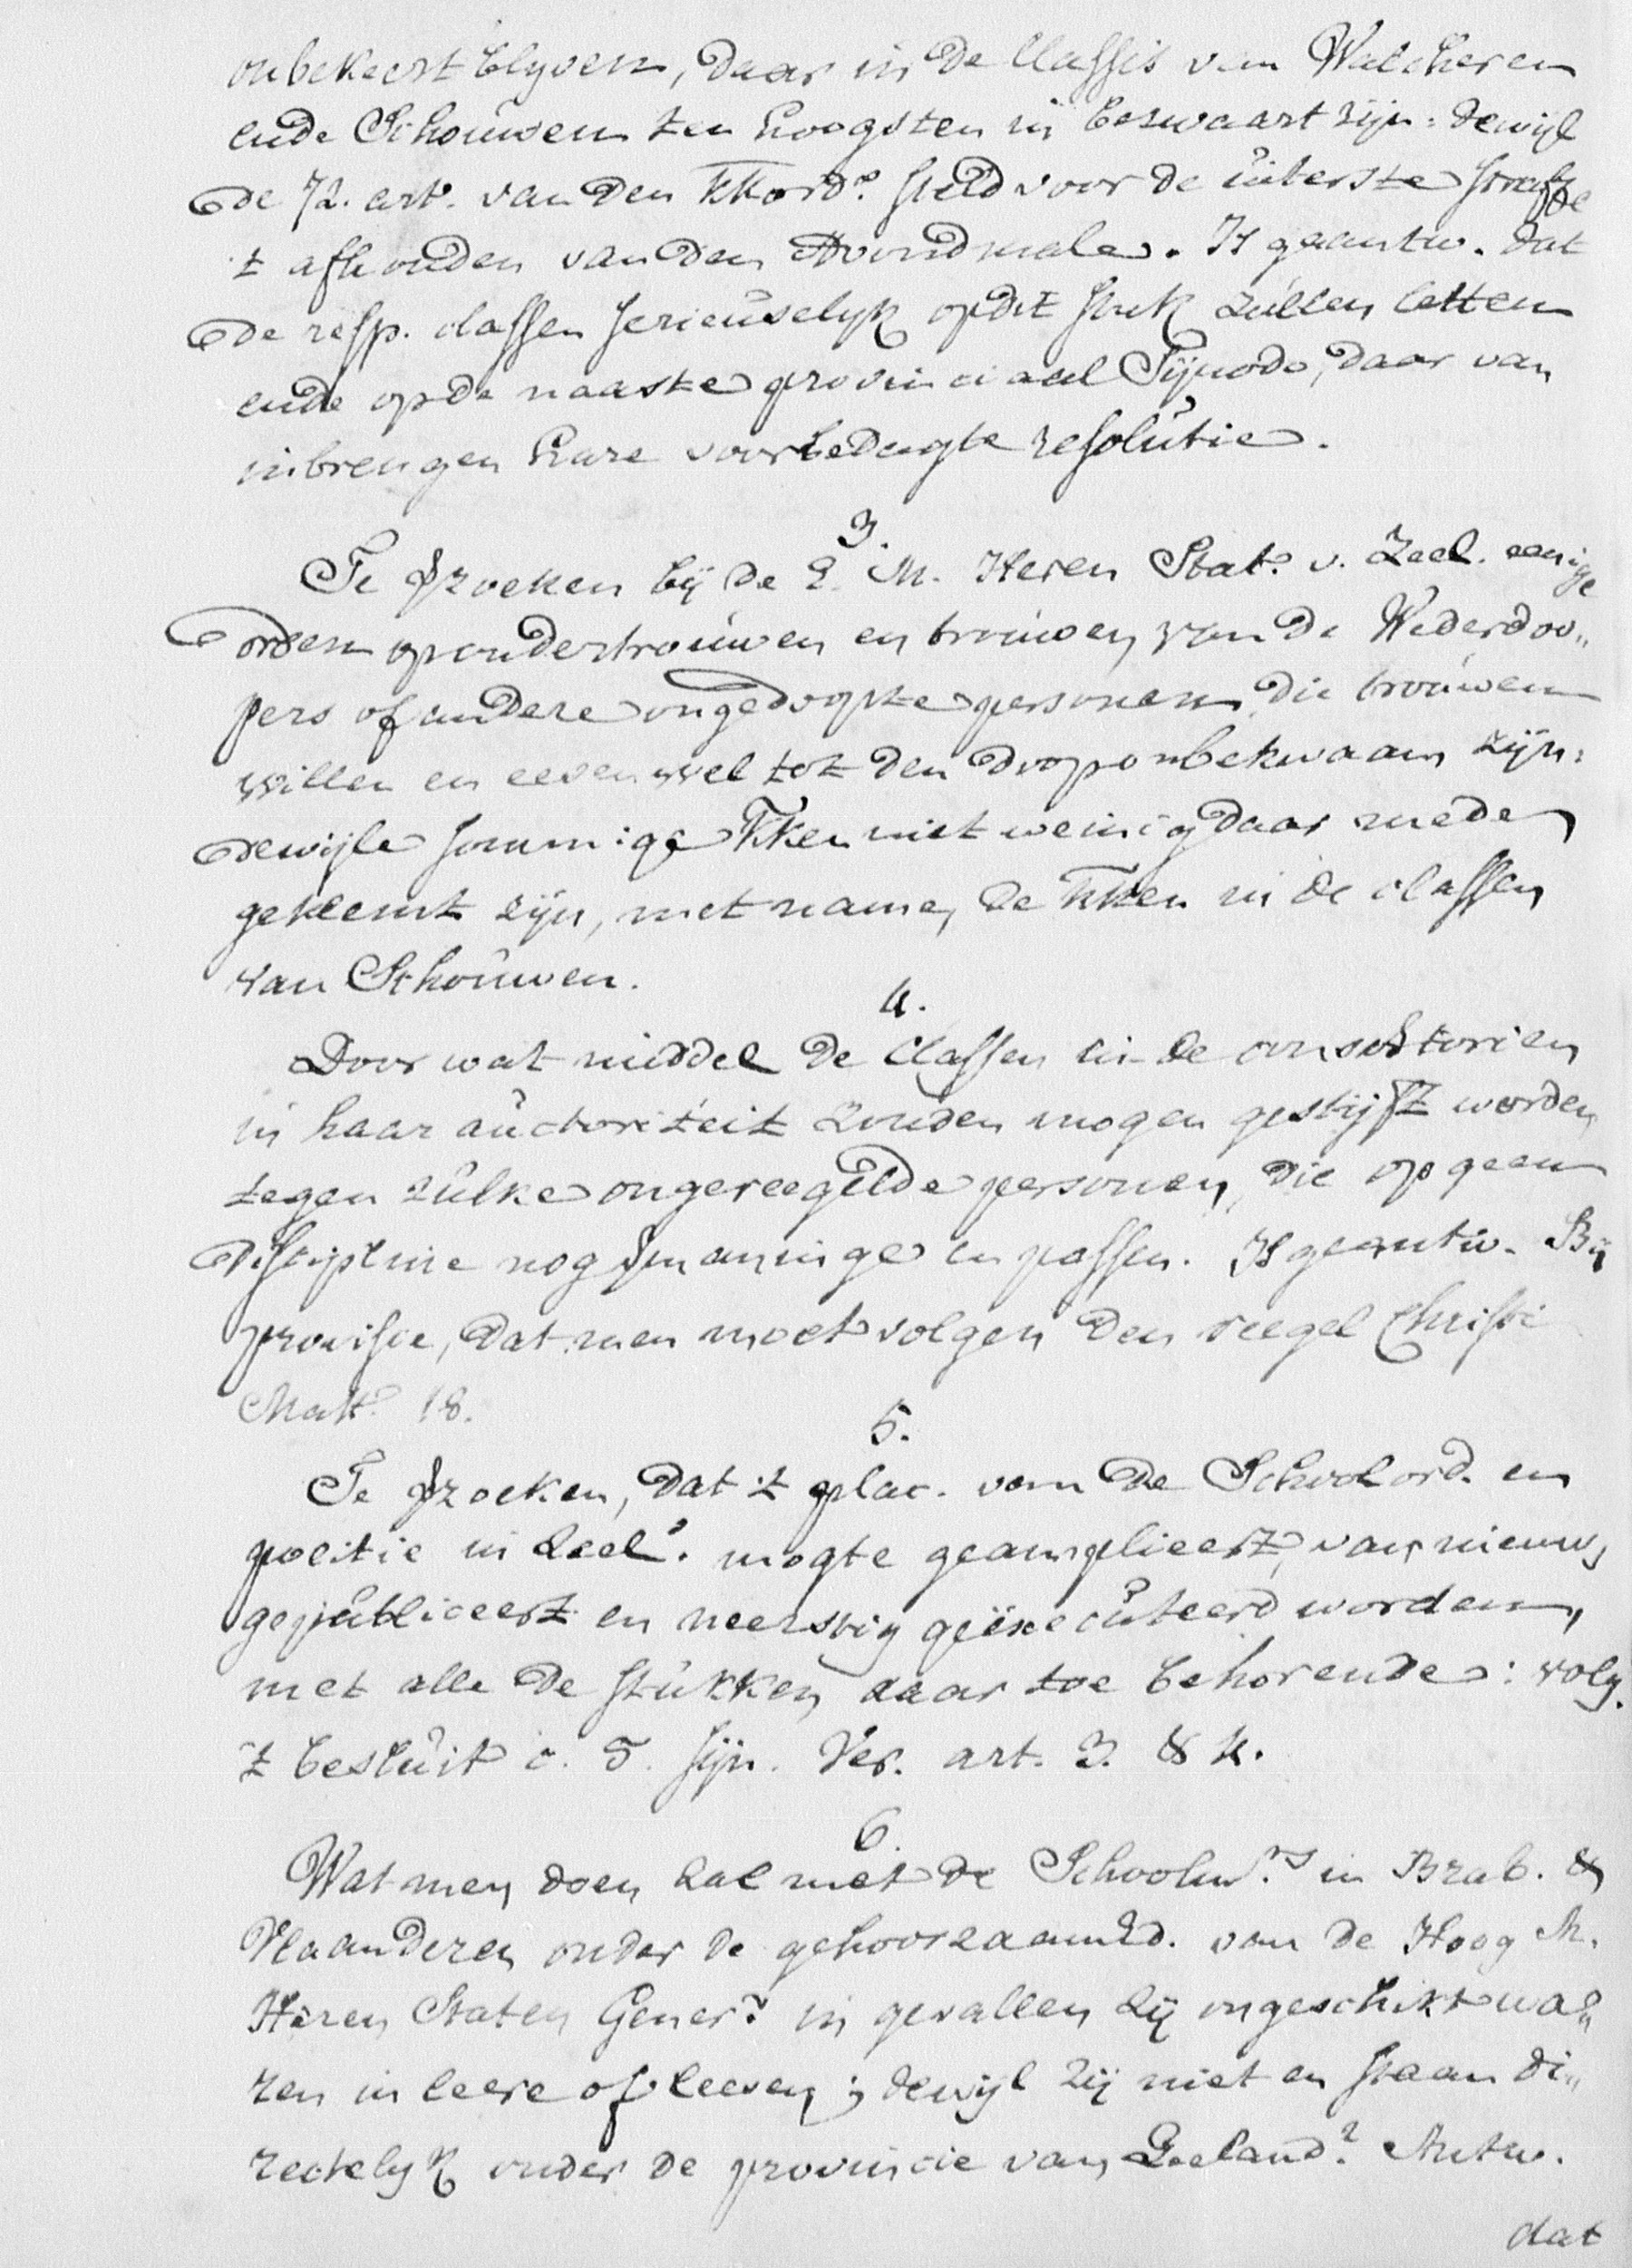 onbekeert blyven, daar in de Classis van Walcheren
ende Schouwen ten hoogsten in beswaart zijn: dewijl
de 72. art. van den KKord.^e steld voor de uiterste straffe
't afhouden van den Avondmale. Is geantw. dat
de resp. classen serieuselyk op dit stuk zullen letten
ende op de naaste provinciaal Sijnodo, daar van
inbrengen hare voorbedagte resolutie.
3.
Te verzoeken bij de E. M. Heren Stat.^n v. Zeel. eenige
orden op ondertrouwen en trouwen van de Wederdoo„
pers of andere ongedoopte personen, die trouwen
willen en eevenwel tot den doop onbekwaam zijn:
dewijle sommige KKen niet weinig daar mede
geklemt zijn, met name, de KKen in de classen
van Schouwen.
4.
Door wat middel de Classen in de consistorien
in haar auctoriteit zouden mogen gestijft worden
tegen zulke ongereegelde personen, die op geen
discipline nog vermaninge en passen. Is geantw. Bij
provisie, dat men moet volgen den reegel Christi
Matt. 18.
5.
Te verzoeken, dat 't plac. van de Schoolord. en
politie in Zeel.^d mogte geamplieert, van nieuws
gepubliceert en neerstig geëxecuteerd worden,
met alle de stukken daar toe behorende: volg.
't besluit c. 5. sijn. Ver. art. 3. & 4.
6.
Wat men doen zal met de Schoolm.^rs in Brab. &
Vlaanderen onder de gehoorzaamhd. van de Hoog M.
Heren Staten Gener.^l in gevallen zij ongeschikt wa„
ren in leere of leeven; dewijl zij niet en staan di„
rectelyk onder de provincie van Zeeland? Antw.
dat